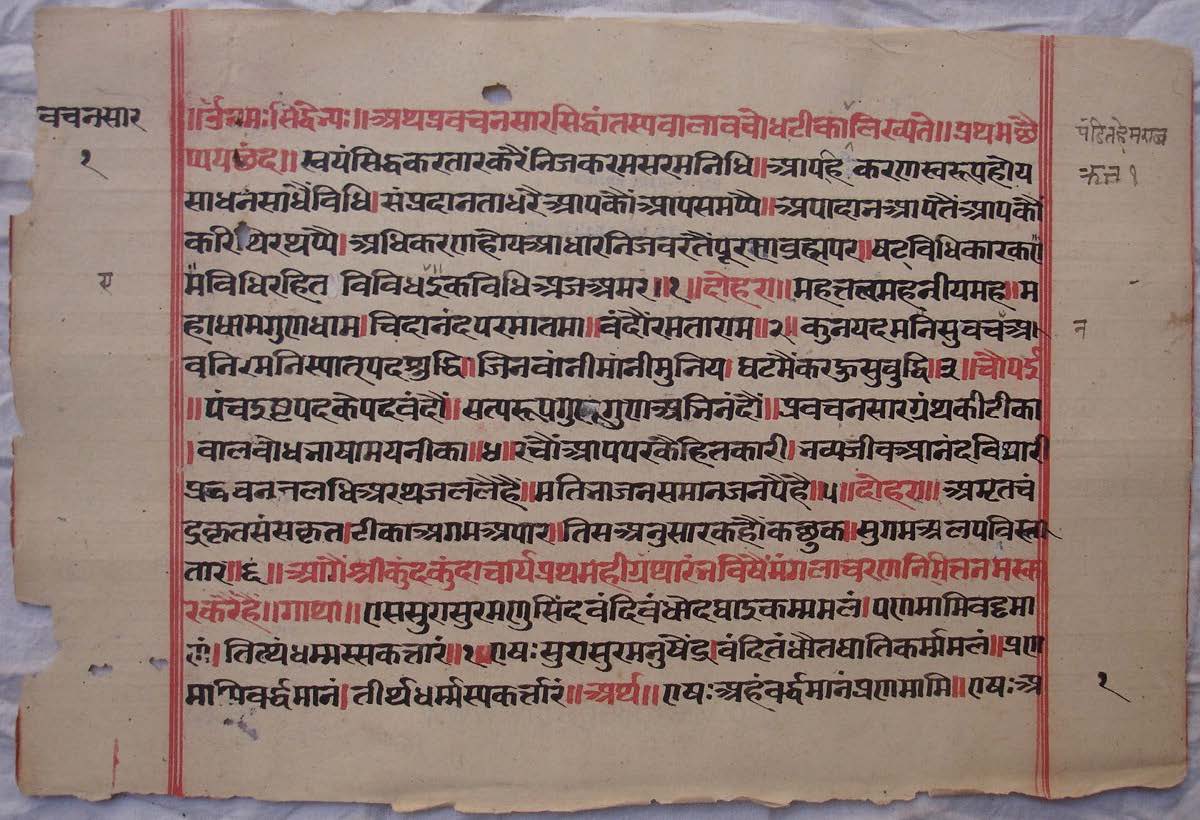 वचनसार
१
॥ॐनमःसिद्धेभ्यः॥अथप्रवचनसारसिद्धांतस्यवालाववोधटीकालिख्यते॥प्रथमछै
प्पयछंद॥स्वयंसिद्धकरतारकरैंनिजकरमसरमनिधि॥आपहि करणस्वरूपहोय
साधनसाधैंविधि।संप्रदानताधरैआपकौंआपसमप्पै॥अपादानआपतैंआपकौं
करिथिरथप्पै।अधिकरणहोयआधारनिजवरतैंपूरणव्रह्मपर॥षटविधिकारकम
मैविधिरहित विविधइकविधिअजअमर॥१॥दोहरा॥महत्तत्वमहनीयमह॥म
हाधामगुणधाम।चिदानंदपरमातमा।वंदौंरमतारांम॥२॥कुनयदमनिसुवचंआ
वनिरमनिस्यात्पदशुद्धि॥जिनवांनीमांनीमुनिय।घटमैंकरऊसुवुद्धि॥३॥चौपई
॥पंचइष्टपदकेपदवंदौं॥सत्यरूपगुरूगुणअभिनंदौं॥प्रवचनसारग्रंथकीटीका
।वालवोधभाषामयनीका॥४॥रचौंआपपरकैंहितकारी।भव्यजीवआनंदविथारी
प्रवचनजलधिअरथजललैहैं॥मतिभाजनसमानजनपैहै॥५॥दोहरा॥अमृतचं
द्रकृतसंसकृत।टीकाअगमअपार।तिसअनुसारकहौंकछुक॥सुगमअलपविस्ता
तार॥६॥आगैंश्रीकुंदकुंदाचार्यप्रथमहीग्रंथारंभविषैंमंगलाचरणनिमित्तनमस्का
रकरैहैं॥गाथा॥एससुरासुरमणुसिंदवंदिदंधोदघाइकम्ममलं।पणमामिवद्दमा
णं।तित्थंधम्मस्सकत्तारं॥१॥एषःसुरासुरमनुषेंद्र।वंदितंधौतघातिकर्म्ममलं॥प्रण
मामिवर्द्धमानं।तीर्थधर्म्मस्यकर्त्तारं॥अर्थ॥एषःअहंवर्द्धमानंप्रणमामि॥एषःअ
पंडितहेमराज
कृत१
न
१